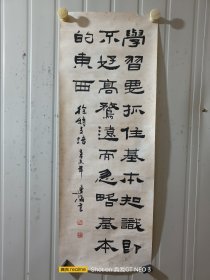 學習要抓住基本知識即
不好高騖遠而忽略基本
的東西
徐特立語
realme Shot on 真我GT NEO 3